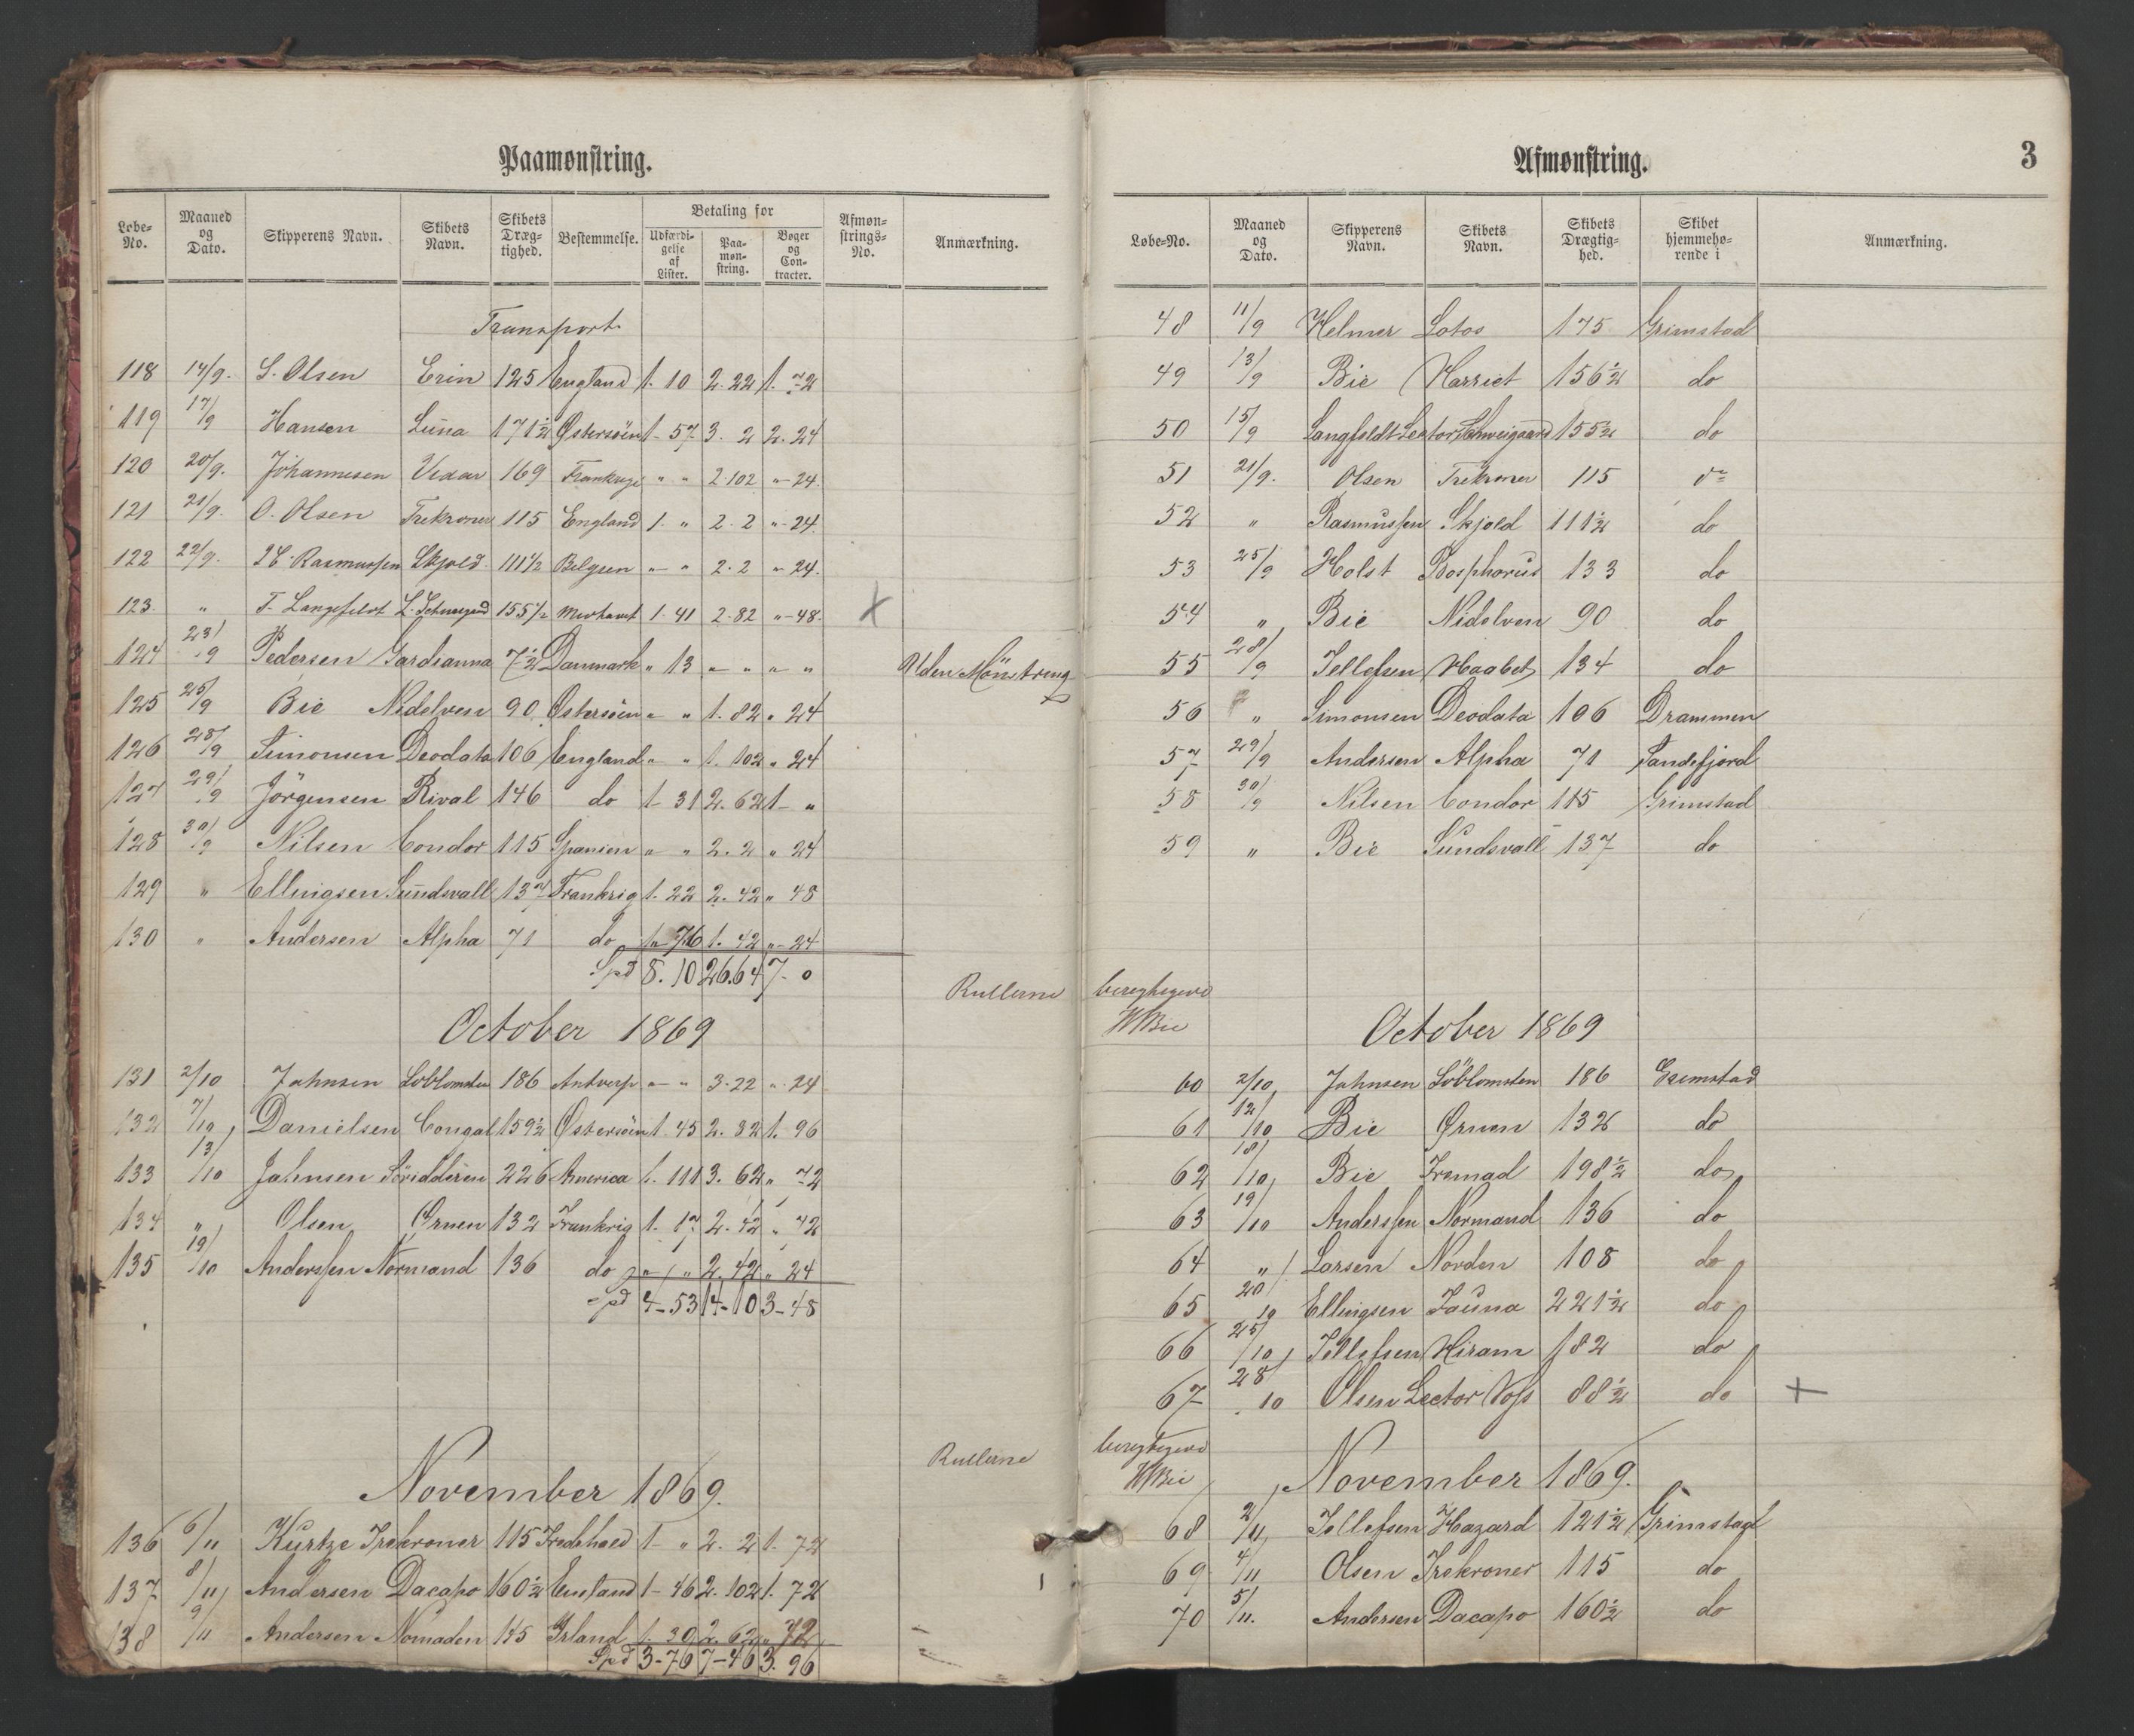 Paamønstring.
Løbe-No. | Maaned og Dato. | Skipperens Navn. | Skibets Navn. | Skibets Dræg-tighed. | Bestemmelse. | Betaling for | Udfærdi-gelse af Lister. | Paa-møn-string. | Bøger og Con-tracter. | Afmøn-strings-No. | Anmærkning.
Transport
118 14/9. S. Olsen Erin 125 England 1. 10 2. 22 1. 72
119 17/9 Hansen Luna 171½ Østersöen 1- 57 3. 2 2. 24
120 20/9. Johannesen Vixar 169 Frankrige " " 2.102 "-24.
121 21/9. O. Olsen Trekroner 115 England 1. " 2. 2 "-24.
122 22/9. Rasmussen Skjold 111½ Belgien "- " 2. 2 "-24.
123. " T. Langefeldt L. Schweigaard 155½ 1. 41 2. 82 "-48. X
124 23/9 Pedersen Gardianna 7½ Danmark " 13 " " " " Uden Mönstring
125 25/9 Bie Nidelven 90 Østersöen " " 1. 82 " 24
126 28/9 Simonsen Deodata 106 England " " 1. 102 " 24
127 29/9 Jörgensen Rival 146 do 1- 31 2. 62 1- "
128 30/9 Nilsen Condor 115 Spanien " " 2. 2 " 24
129 " Ellingsen Sundsvall 137 Frankrig 1. 22 2. 42 " 48
130 " Andersen Alpha 71 do " 76 1. 42 "-24
Spd 8. 10 26.64 7- 0
Rullerne
October 1869
131 2/10 Jahnsen Söblomsten 186 Antverp "- " 3-22 " 24
132 7/10 Danielsen Congal 159½ Østersöen 1. 45 2. 82 1. 96
133 13/10 Jahnsen Söridderen 226 America 1. 111 3. 62 " 72
134 " Olsen Ørnen 132 Frankrig 1. 17 2. 42 " 42
135 19/10 Anderssen Normand 136 do " " 2. 42 " 24
Spd 4-53 14-10 3-48
Rullerne
November 1869.
136 6/11 Kurtze Trekroner 115 Fredhald 1- " 2. 2 1. 72
137 8/11 Andersen Dacapo 160½ England 1- 46 2. 102 1. 72
138 9/11 Andersen Nomaden 145 Irland 1. 30 2. 62 " 72
Spd 3-76 7-46 3. 96
Afmønstring. 3
Løbe-No. | Maaned og Dato. | Skipperens Navn. | Skibets Navn. | Skibets Drægtig-hed. | Skibet hjemmehø-rende i | Anmærkning.
48 11/9 Helmer Lotos 175 Grimstad
49 13/9 Bie Harriet 156½ do
50 15/9 Langfeldt Lector Schweigaard 155½ do
51 21/9. Olsen Trekroner 115 do
52 " Rasmussen Skjold 111½ do
53 25/9 Holst Bosphorus 133 do
54 " Bie Nidelven 90 do
55 28/9 Tellefsen Haabet 134 do
56 " Simonsen Deodata 106 Drammen
57 29/9 Andersen Alpha 71 Sandefjord
58 30/9 Nilsen Condor 115 Grimstad
59 " Bie Sundsvall 137 do
WBie
October 1869
60 2/10 Jahnsen Söblomsten 186 Grimstad
61 12/10 Bie Ørnen 132 do
62 18/10 Bie Fremad 198½ do
63 19/10 Anderssen Normand 136 do
64 " Larsen Norden 108 do
65 20/10 Ellingsen Fauna 221½ do
66 25/10 Tellefsen Hiram 182 do
67 28/10 Olsen Lector Voss 88½ do +
WBie
November 1869.
68 2/11 Tellefsen Hazard 121½ Grimstad
69 4/11 Olsen Trekroner 115 do
70 5/11. Andersen Dacapo 160½ do